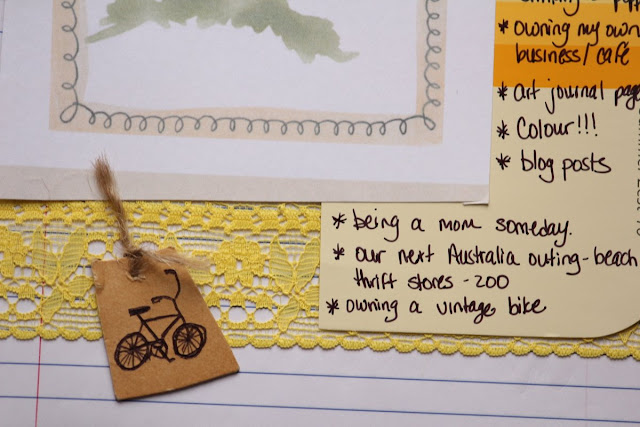 * owning my own
business/café
* art journal page
* Colour!!!
* blog posts
* being a mom someday.
* our next Australia outing-beach
thrift stores - zoo
* owning a vintage bike